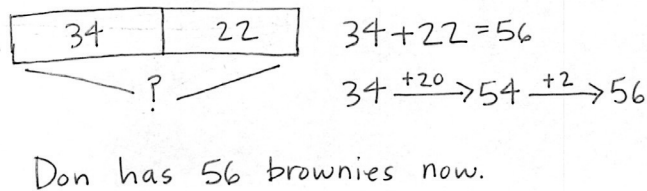 34 22 34+22=56
? 34 +20→ 54 +2→ 56
Don has 56 brownies now.